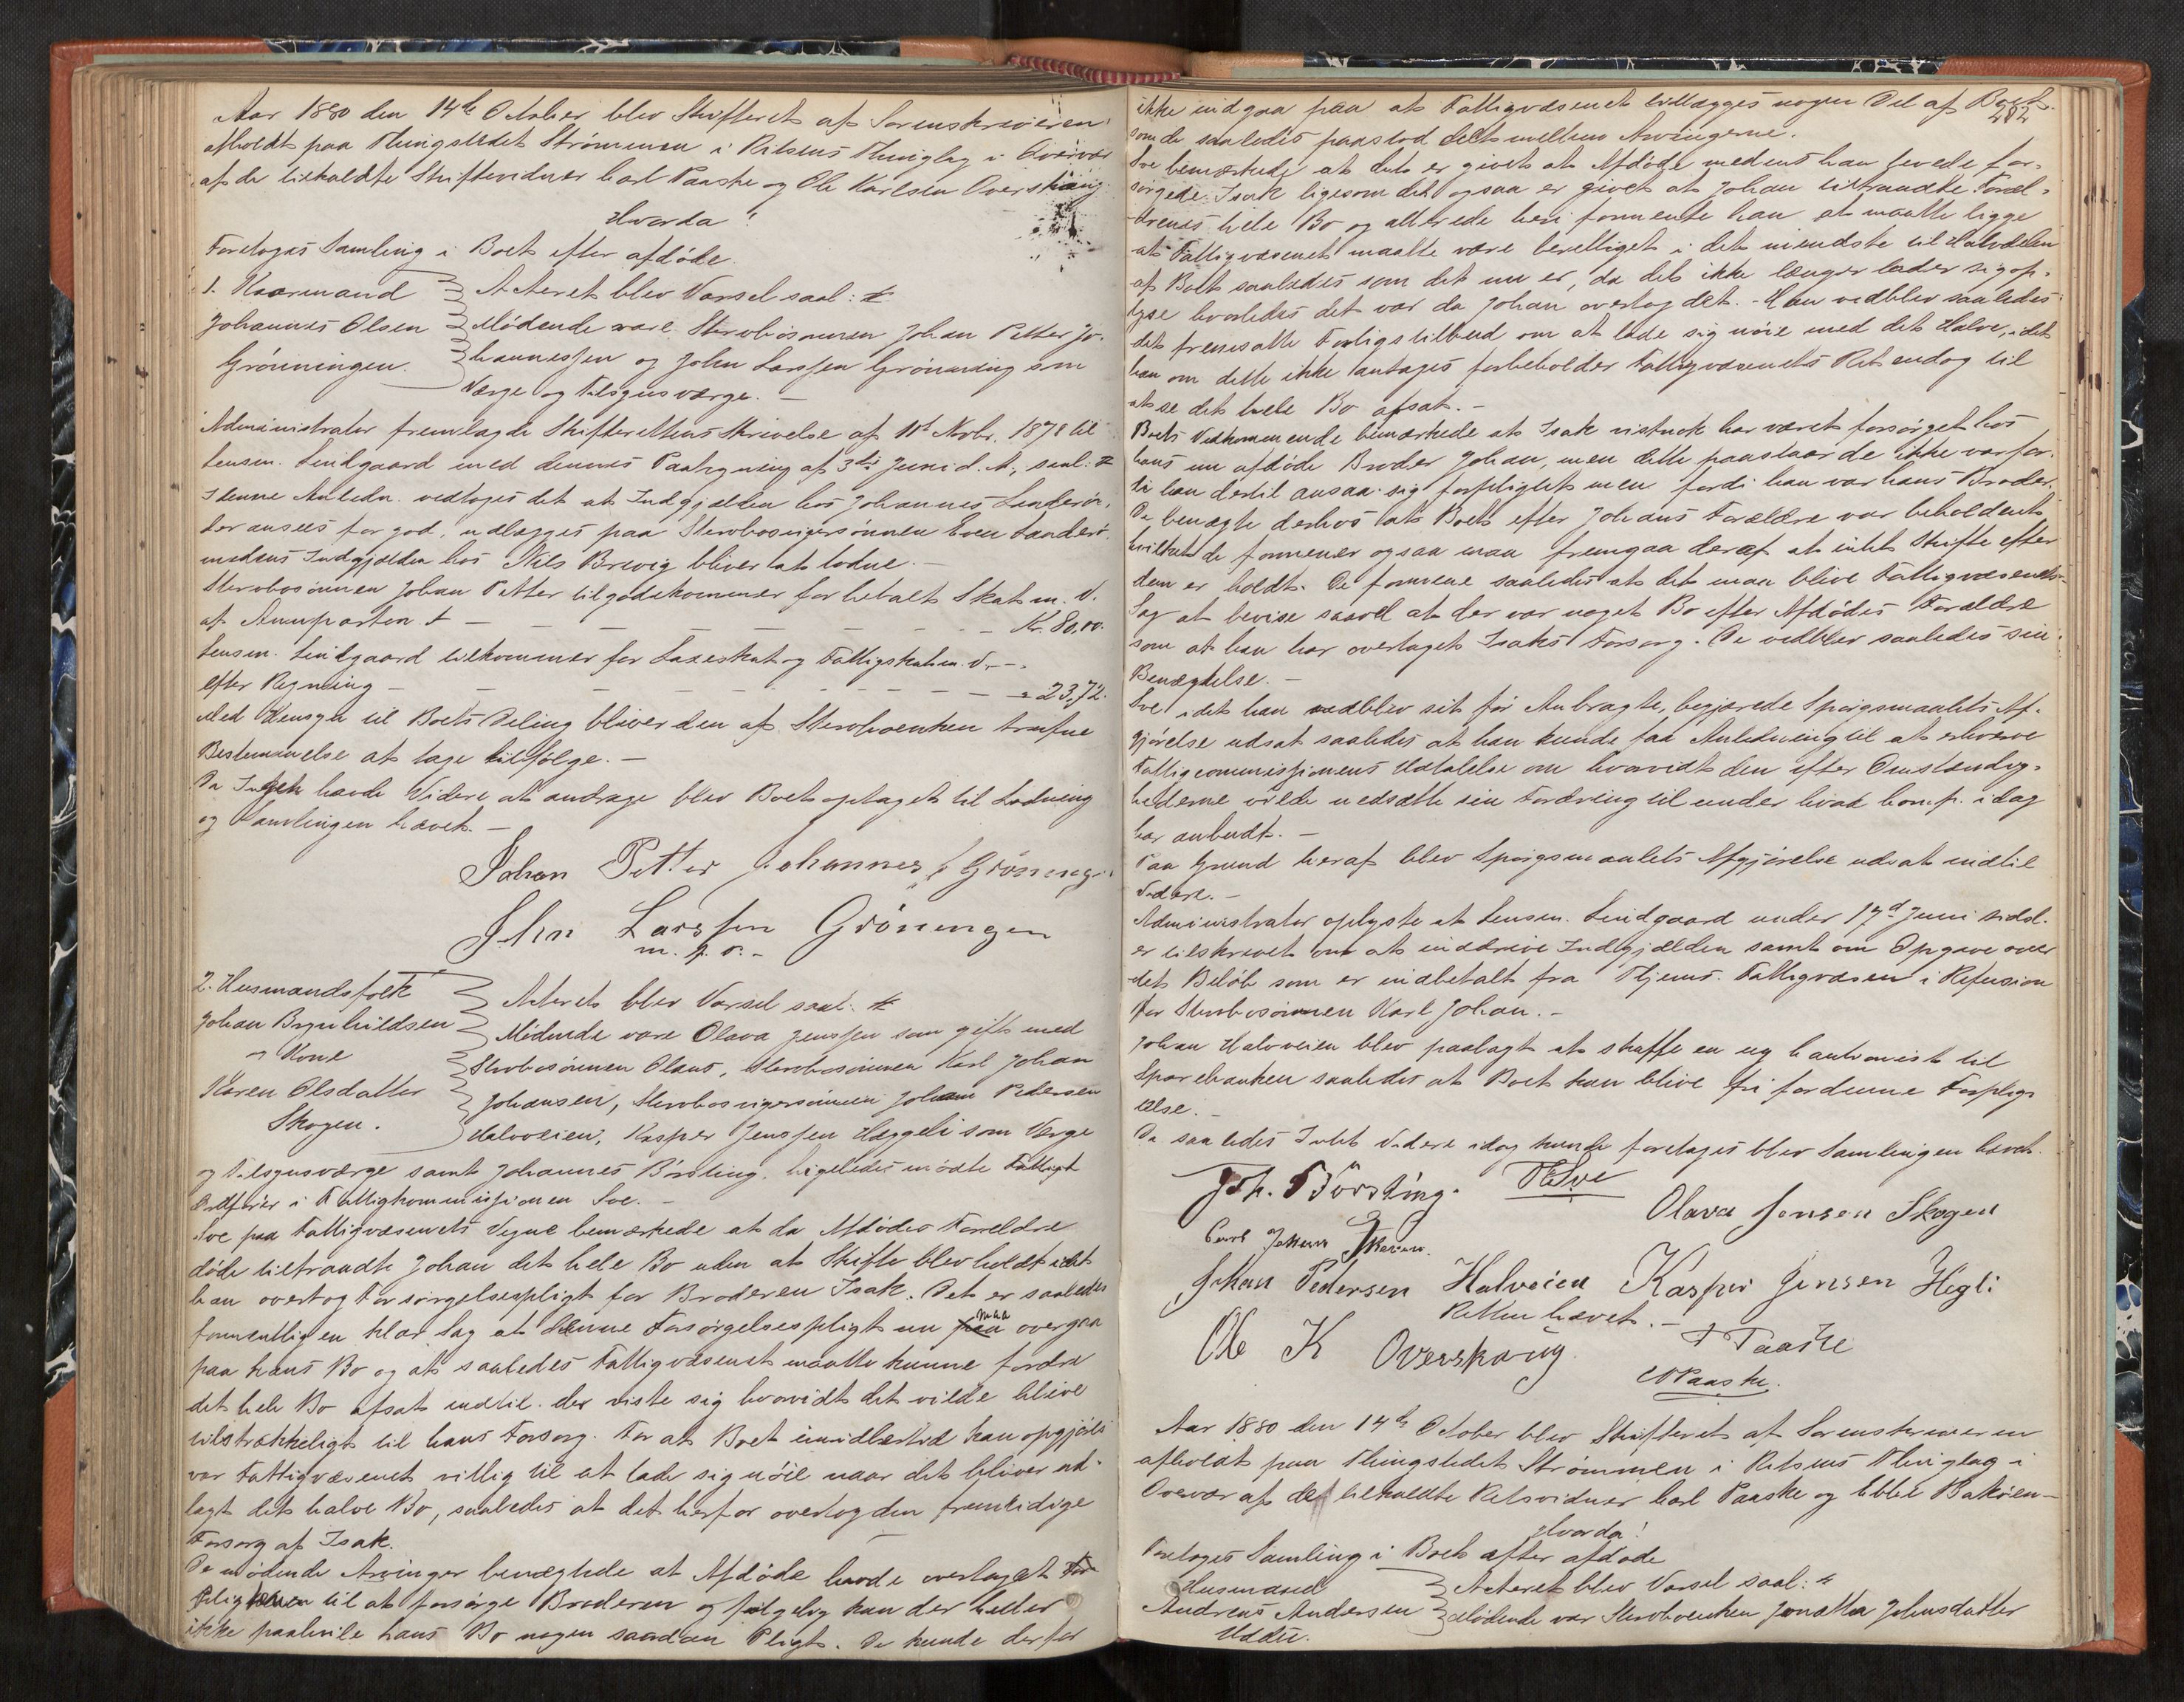 Aar 1880 den 14de October blev Skifteret af Sorenskriveren
afholdt paa Thingstedet Strømmen i Ritsens Thinglag i Overvær
af de tilkaldte Skiftevidner Carl Paaske og Ole Karlsen Overskaug
Hvorda!
Foretoges Samling i Boet efter afdøde
1. Kaarmand
Johannes Olsen
Grønningen.
Acteret blev Varsel saal:
Mødende vare Stervbosønnen Johan Petter Jo-
hannessen og John Larssen Grønning som
Værge og Tilsynsværge. —
Administrator fremlagde Skifterettens Skrivelse af 11te Novbr. 1878 til
Lensm. Lindgaard med dennes Paategning af 3die Juni d. A., saal:
I denne Anledn. vedtoges det at Indgjælden hos Johannes
 ansees for god, udlægges paa Stervbosvigersønnen Even
medens Indgjælden hos Nils Brevig bliver at lodne. —
Stervbosønnen Johan Petter tilgodekommer for betalt Skat m. V.
af Annparten — — — — Kr. 80,00.
Lensm. Lindgaard tilkommer for Lægeskat og Fattigskat m. V. —
efter Regning — — — — - 23,72.
Med Hensyn til Boets Deling bliver den af Stervboenken trufne
Bestemmelse at tage tilfølge. —
Da Ingen havde Videre at andrage blev Boet optaget til Lodning
og Samlingen hævet. —
Johan Petter Johannes Gröning
John Larssen Gröningen
m. p. P. -
2. Husmandsfolk
Johan Brynhildsen
og Kone
Karen Olsdatter
Skogen.
Acteret blev Varsel saal.
Mødende vare Olava Jenssen som gift med
Stervbosønnen Olaus, Stervbosønnen Karl Johan
Johansen, Stervbosvigersønnen Johan Pedersen
Halvveien, Kasper Jenssen Hæggeli som Værge
og Tilsynsværge samt Johannes Børsting. Ligeledes mødte
Ordfører i Fattigkommissionen Sve. —
Sve paa Fattigvæsenets Vegne bemærkede at da Afdødes Forældre
døde tiltraadte Johan det hele Bo uden at Skifte blev holdt idet
han overtog Forsørgelsespligt for Broderen Isak. Det er saaledes
formentlig en klar Sag at denne Forsørgelsespligt nu maa overgaa
paa hans Bo og at saaledes Fattigvæsenet maatte kunne fordre
det hele Bo afsat indtil det viste sig hvorvidt det vilde blive
tilstrækkeligt til hans Forsorg. For at Boet imidlertid kan opgjøres
var Fattigvæsenet villig til at lade sig nøie naar det bliver ud-
lagt det halve Bo, saaledes at det herfor overtog den fremtidige
Forsorg af Isak.
De mødende Arvinger benægtede at Afdøde havde overtaget For-
pligtelsen til at forsørge Broderen og følgelig kan der heller
ikke paahvile hans Bo nogen saadan Pligt. De kunde derfor
282
ikke indgaa paa at Fattigvæsenet tillægges nogen Del af Boet
som de saaledes paastod delt mellem Arvingerne.
Sve bemærkede at det er givet at Afdøde medens han levede for-
sørgede Isak ligesom det ogsaa er givet at Johan tiltraadte Foræl-
drenes hele Bo og allerede heri formente han at maatte ligge
at Fattigvæsenet maatte være berettiget i det mindste til Halvdelen
af Boet saaledes som det nu er, da det ikke længer lader sig op-
lyse hvorledes det var da Johan overtog det. - Han vedblev saaledes
det fremsatte Forligstilbud om at lade sig nøie med det Halve, idet
han om dette ikke antages forbeholder Fattigvæsenets Ret endog til
at se det hele Bo afsat. —
Boets Vedkommende bemærkede at Isak vistnok har været forsørget hos
hans nu afdøde Broder Johan, men dette paastaar de ikke var for-
di han dertil ansaa sig forpligtet men fordi han var hans Broder.
De benægte derhos at Boet efter Johans Forældre var beholdent
hvilket de formener ogsaa maa fremgaa deraf at intet Skifte efter
dem er holdt. De formene saaledes at det maa blive Fattigvæsenets
Sag at bevise saavel at der var noget Bo efter Afdødes Forældre
som at han har overtaget Isaks Forsorg. De vedblev saaledes sin
Benægtelse. —
Sve idet han vedblev sit før Anbragte, begjærede Spørgsmaalets Af-
gjørelse udsat saaledes at han kunde faa Anledning til at erhverve
Fattigcommissionens Udtalelse om hvorvidt den efter Omstændig-
hederne vilde nedsætte sin Fordring til under hvad Komp. idag
har anbudt. —
Paa Grund heraf blev Spørgsmaalets Afgjørelse udsat indtil
Videre. —
Administrator oplyste at Lensm. Lindgaard under 17de Juni sidstl.
er tilskrevet om at inddrive Indgjælden samt om Opgave over
det Beløb som er indbetalt fra Fattigvæsen i Refusion
for Stervbosønnen Karl Johan. —
Johan Halvveien blev paalagt at skaffe en ny Kautionist til
Sparebanken saaledes at Boet kan blive fri for denne Forplig-
telse. —
Da saaledes Intet Videre idag kunde foretages blev Samlingen hævet.
Joh. Börsting. Sve
Olava Jensen Skogen
Carl Johan
Johan Pedersen Halveien Kasper Jensen Hegli
Retten hævet. —
Ole K Overskaug F Paaske
C Paaske.
Aar 1880 den 14de October blev Skifteret af Sorenskriveren
afholdt paa Thingstedet Strømmen i Ritsens Thinglag i
Overvær af de tilkaldte Retsvidner Carl Paaske og Ebbe Bakøen —
Hvorda!
Foretoges Samling i Boet efter afdøde
Husmand
Andreas Andersen
Uddu.
Acteret blev Varsel saal:
Mødende var Stervboenken Jonetta Johnsdatter